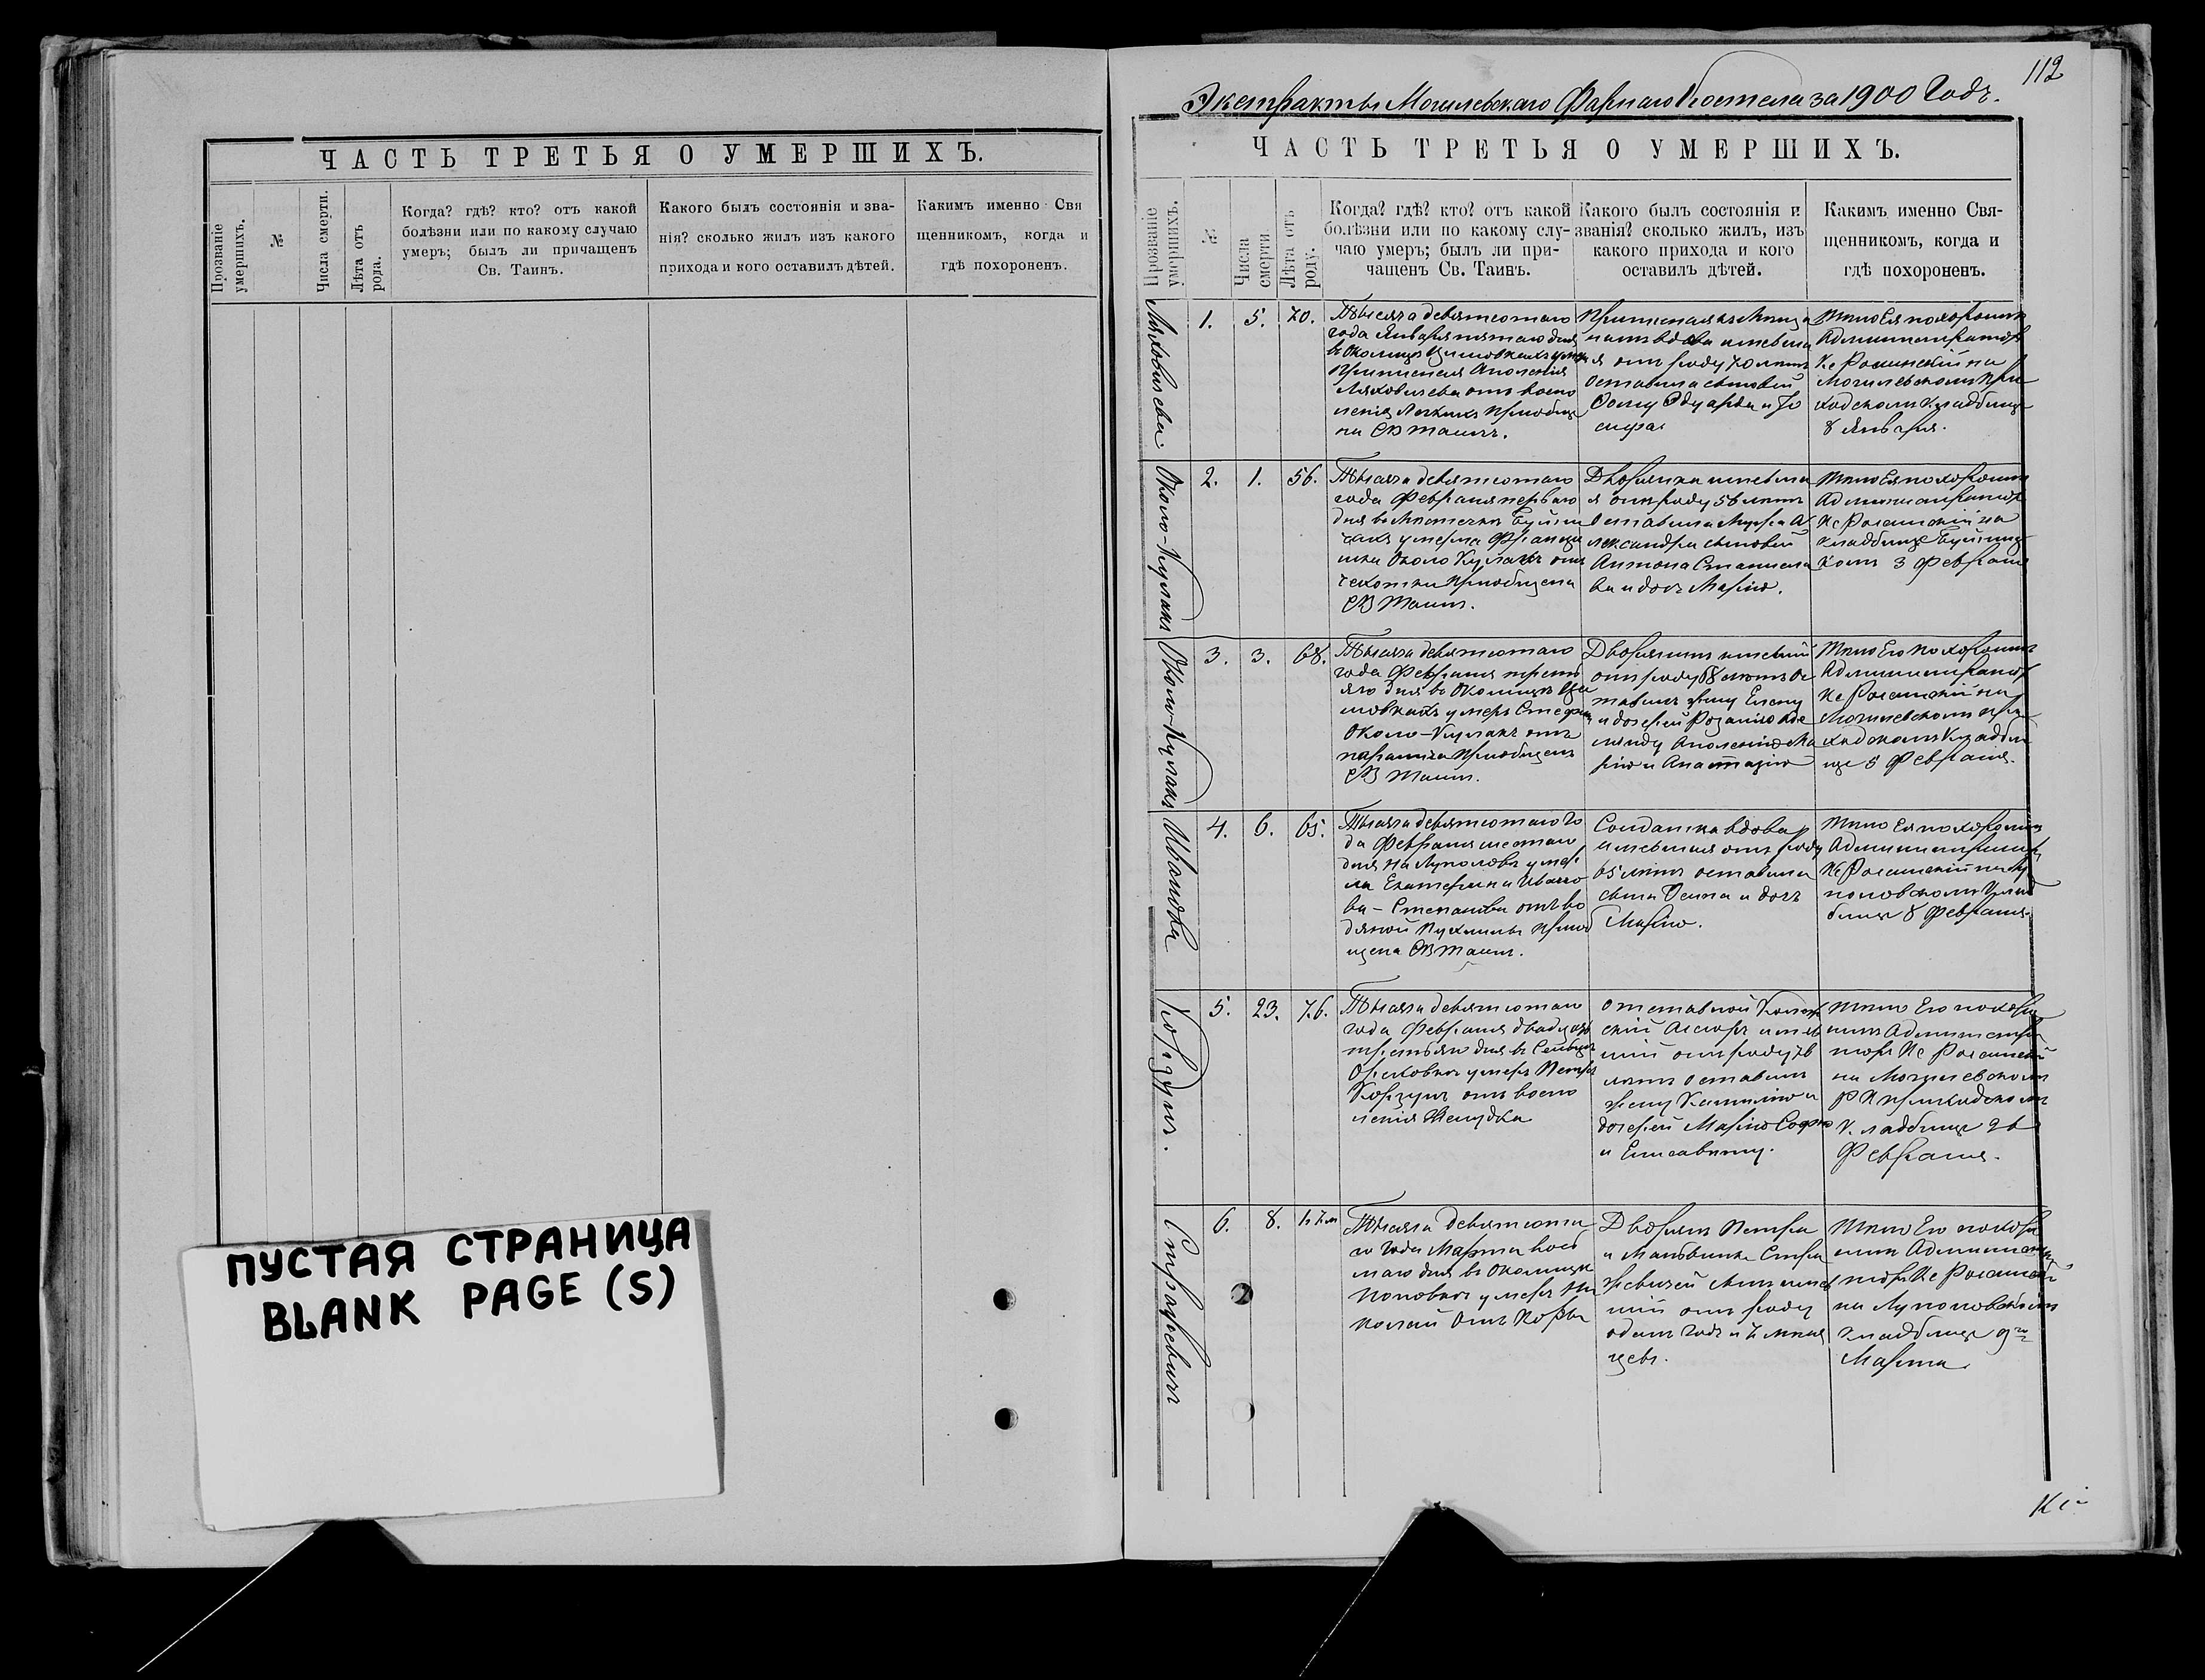 ЧАСТЬ ТРЕТЬЯ О УМЕРШИХЪ.
Прозваніе
умершихъ.
№
Числа смерти.
Лѣта отъ
рода.
Когда? гдѣ? кто? отъ какой
болѣзни или по какому случаю
умеръ; былъ ли причащенъ
Св. Таинъ.
Какого былъ состоянія и зва-
нія? сколько жилъ изъ какого
прихода и кого оставилъ дѣтей.
Какимъ именно Свя
щенникомъ, когда и
гдѣ похороненъ.
ПУСТАЯ СТРАНИЦА
BLANK PAGE (S)
112
Экстрактъ Могилевскаго Фарнаго Костела за 1900 Годъ.
ЧАСТЬ ТРЕТЬЯ О УМЕРШИХЪ.
Прозваніе
умершихъ.
№
Числа
смерти
Лѣта отъ
роду.
Когда? гдѣ? кто? отъ какой
болѣзни или по какому слу-
чаю умеръ; былъ ли при-
чащенъ Св. Таинъ.
Какого былъ состоянія и
званія? сколько жилъ, изъ
какого прихода и кого
оставилъ дѣтей.
Какимъ именно Свя-
щенникомъ, когда и
гдѣ похороненъ.
Ляховичева
1.
5.
70.
Тысяча девятсотаго
года Января пятаго дня
въ Околицѣ
Аполонія
Ляховичева отъ воспа
ленія легкихъ приобще
на СВ Таинъ.
вдова имевша
я отъ роду 70 лѣтъ
Оставила сыновей
Эдуарда и Іо
сифа
Тѣло Ея похоронилъ
Администраторъ
Кс на
Могилевскомъ при
ходскомъ кладбищѣ
8 Января.
Около-Кулакъ
2.
1.
56.
Тысяча девятсотаго
года Февраля перваго
дня въ Мѣстечкѣ Буйни
чахъ умерла Францы
шка Около Кулакъ отъ
чахотки приобщена
СВ Таинъ.
Дворянка имевша
я отъ роду 56 лѣтъ
Оставила Мужа А
лександра сыновей
Антона Станисла
ва и дочь Марію.
Тѣло Ея похоронилъ
Администраторъ
Кс на
кладбищѣ Буйниц
комъ 3 Февраля
Около-Кулакъ
3.
3.
68.
Тысяча девятсотаго
года Февраля треть
яго дня въ Околицѣ
умеръ Стефанъ
Около-Кулакъ отъ
паралича приобщенъ
СВ Таинъ.
Дворянинъ имевшій
отъ роду 68 лѣтъ Ос
тавилъ жену Елену
и дочерей Розалію
Аполонію Ма
рію и Анастазію
Тѣло Его похоронилъ
Администраторъ
Кс на
Могилевскомъ при
ходскомъ кладби
ще 5 Февраля.
Иванова
4.
6.
65.
Тысяча девятсотаго го
да Февраля шестаго
дня на Луполовѣ умер
ла Екатерина Ивано
ва - Степанова отъ во
дяной приоб
щена СВ Таинъ.
Солдатка вдова
имевшая отъ роду
65 лѣтъ оставила
сына Осипа и дочь
Марію.
Тѣло Ея похоронилъ
Администраторъ
Кс на Лу
половскомъ клад
бище 8 Февраля.
Корзунъ.
5.
23.
76.
Тысяча девятсотаго
года Февраля двадцать
третьяго дня въ
умеръ Петръ
Корзунъ отъ воспа
ленія Желудка
Отставной Коллеж
скій имев
шій отъ роду 76
лѣтъ оставилъ
жену Камилію и
дочерей Марію Софію
и Елисавету.
Тѣло Его похоро
нилъ Администра
торъ Кс
на Могилевскомъ
РК приходскомъ
кладбище 26
Февраля.
Стражевичъ
6.
8.
Тысяча девятсота
го года Марта вось
маго дня въ Околицѣ
Поповкѣ умеръ Ни
колай отъ Кори
Дворянъ Петра
и Стра
жевичей сынъ имев
шій отъ роду
одинъ годъ и 7 мѣся
цевъ.
Тѣло Его похоро
нилъ Администра
торъ Кс
на Луполовскомъ
кладбище 9го
Марта.